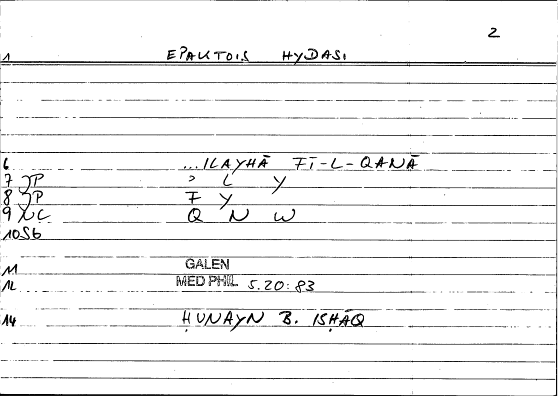 2
1 EPAKTOIS HYDASI
6 ...ILAYHĀ FĪ-L-QANĀ
7 JP ʾ L Y
8 JP F Y
9 NC Q N W
10 S6
11 GALEN
12 MED PHIL 5.20:83
14 ḤUNAYN B. ISḤĀQ